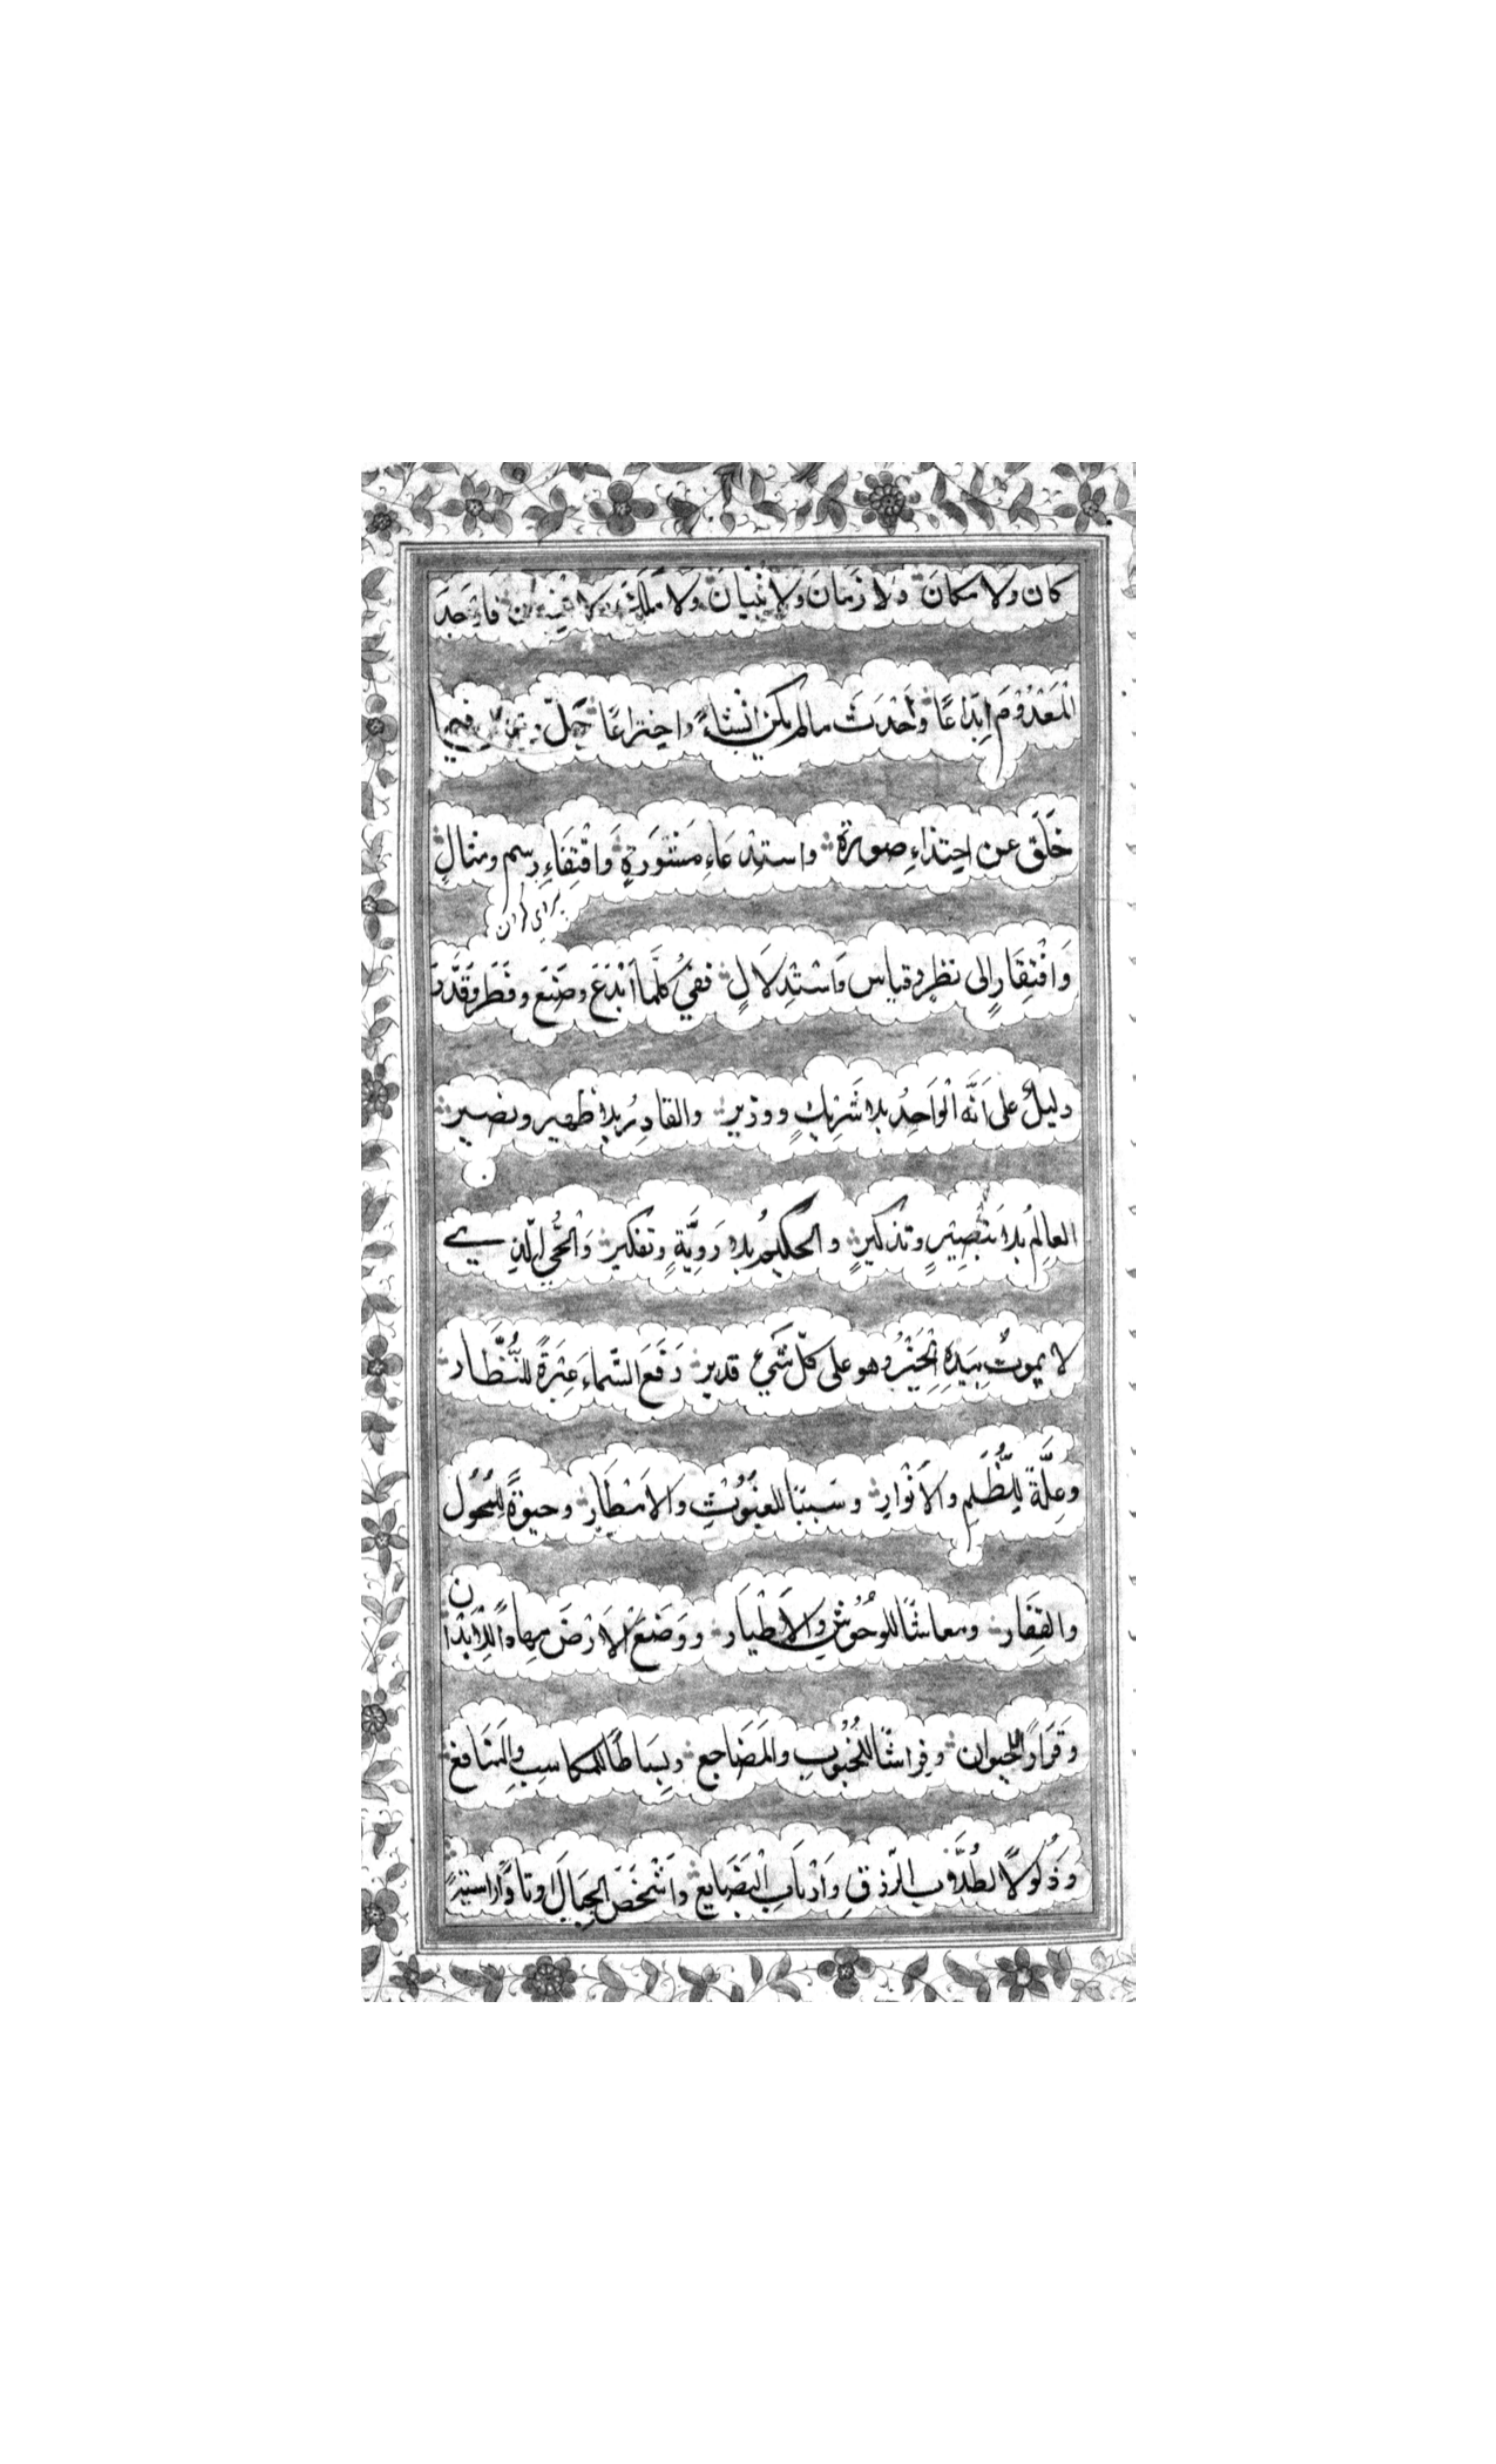 كان ولا مكانَ ولا زَمَانَ ولا بُنْيَانَ ولا فَاَوْجَدَ
الْمَعْدُوْمَ اِبْدَاعًا وَاَحْدَثَ مالم يكن انْشَاءً واختراعًا جَلَّ فيما
خَلَقَ عن احتِذَاءِ صورة واستِدْعَاءِ مَشْوَرَةٍ وَاقْتِفَاءِ رسم ومثالٍ
وَافْتِقَارٍ الى نظرٍ وقياس وَاسْتِدْلَالٍ ففي كلَّما اَبْدَعَ وصَنَعَ وفَطَرَ وَقَدَّرَ
دليلٌ على اَنَّه الْوَاحِدُ بلا شَرِيْكٍ ووزير والقادِرُ بلا ظهير ونصير
العالِمُ بلا تَبْصِيْرٍ وتذكيرٍ والحكيمُ بلا رَوِيَّةٍ وتفكير وَالْحَيُّ الّذي
لا يموتُ بِيَدِهِ الْخَيْرُ وهو على كلّ شَيْءٍ قدير رَفَعَ السّماءَ عِبْرَةً للنُّظَّار
وعِلَّةً لِلظُّلَمِ والاَنْوَارِ وسَبَبًا للغُيُوْثِ والاَمْطَارِ وحيوةً للمُحُول
والقِفَار ومعاشًا للوحُوْشِ والاَطْيَار ووَضَعَ الاَرْضَ مِهادًا لِلْاَبْدَان
وقَرَارًا للحيوان وفِراشًا للجُنُوْبِ والمَضَاجع وبِسَاطًا للمكاسِبِ والمَنَافع
وذَلُولًا لطُلَّاب الرّزقِ وَاَرْبَابِ الْبَضَايِع واَشْخَصَ الجِبَالَ اوتادًا راسيةً